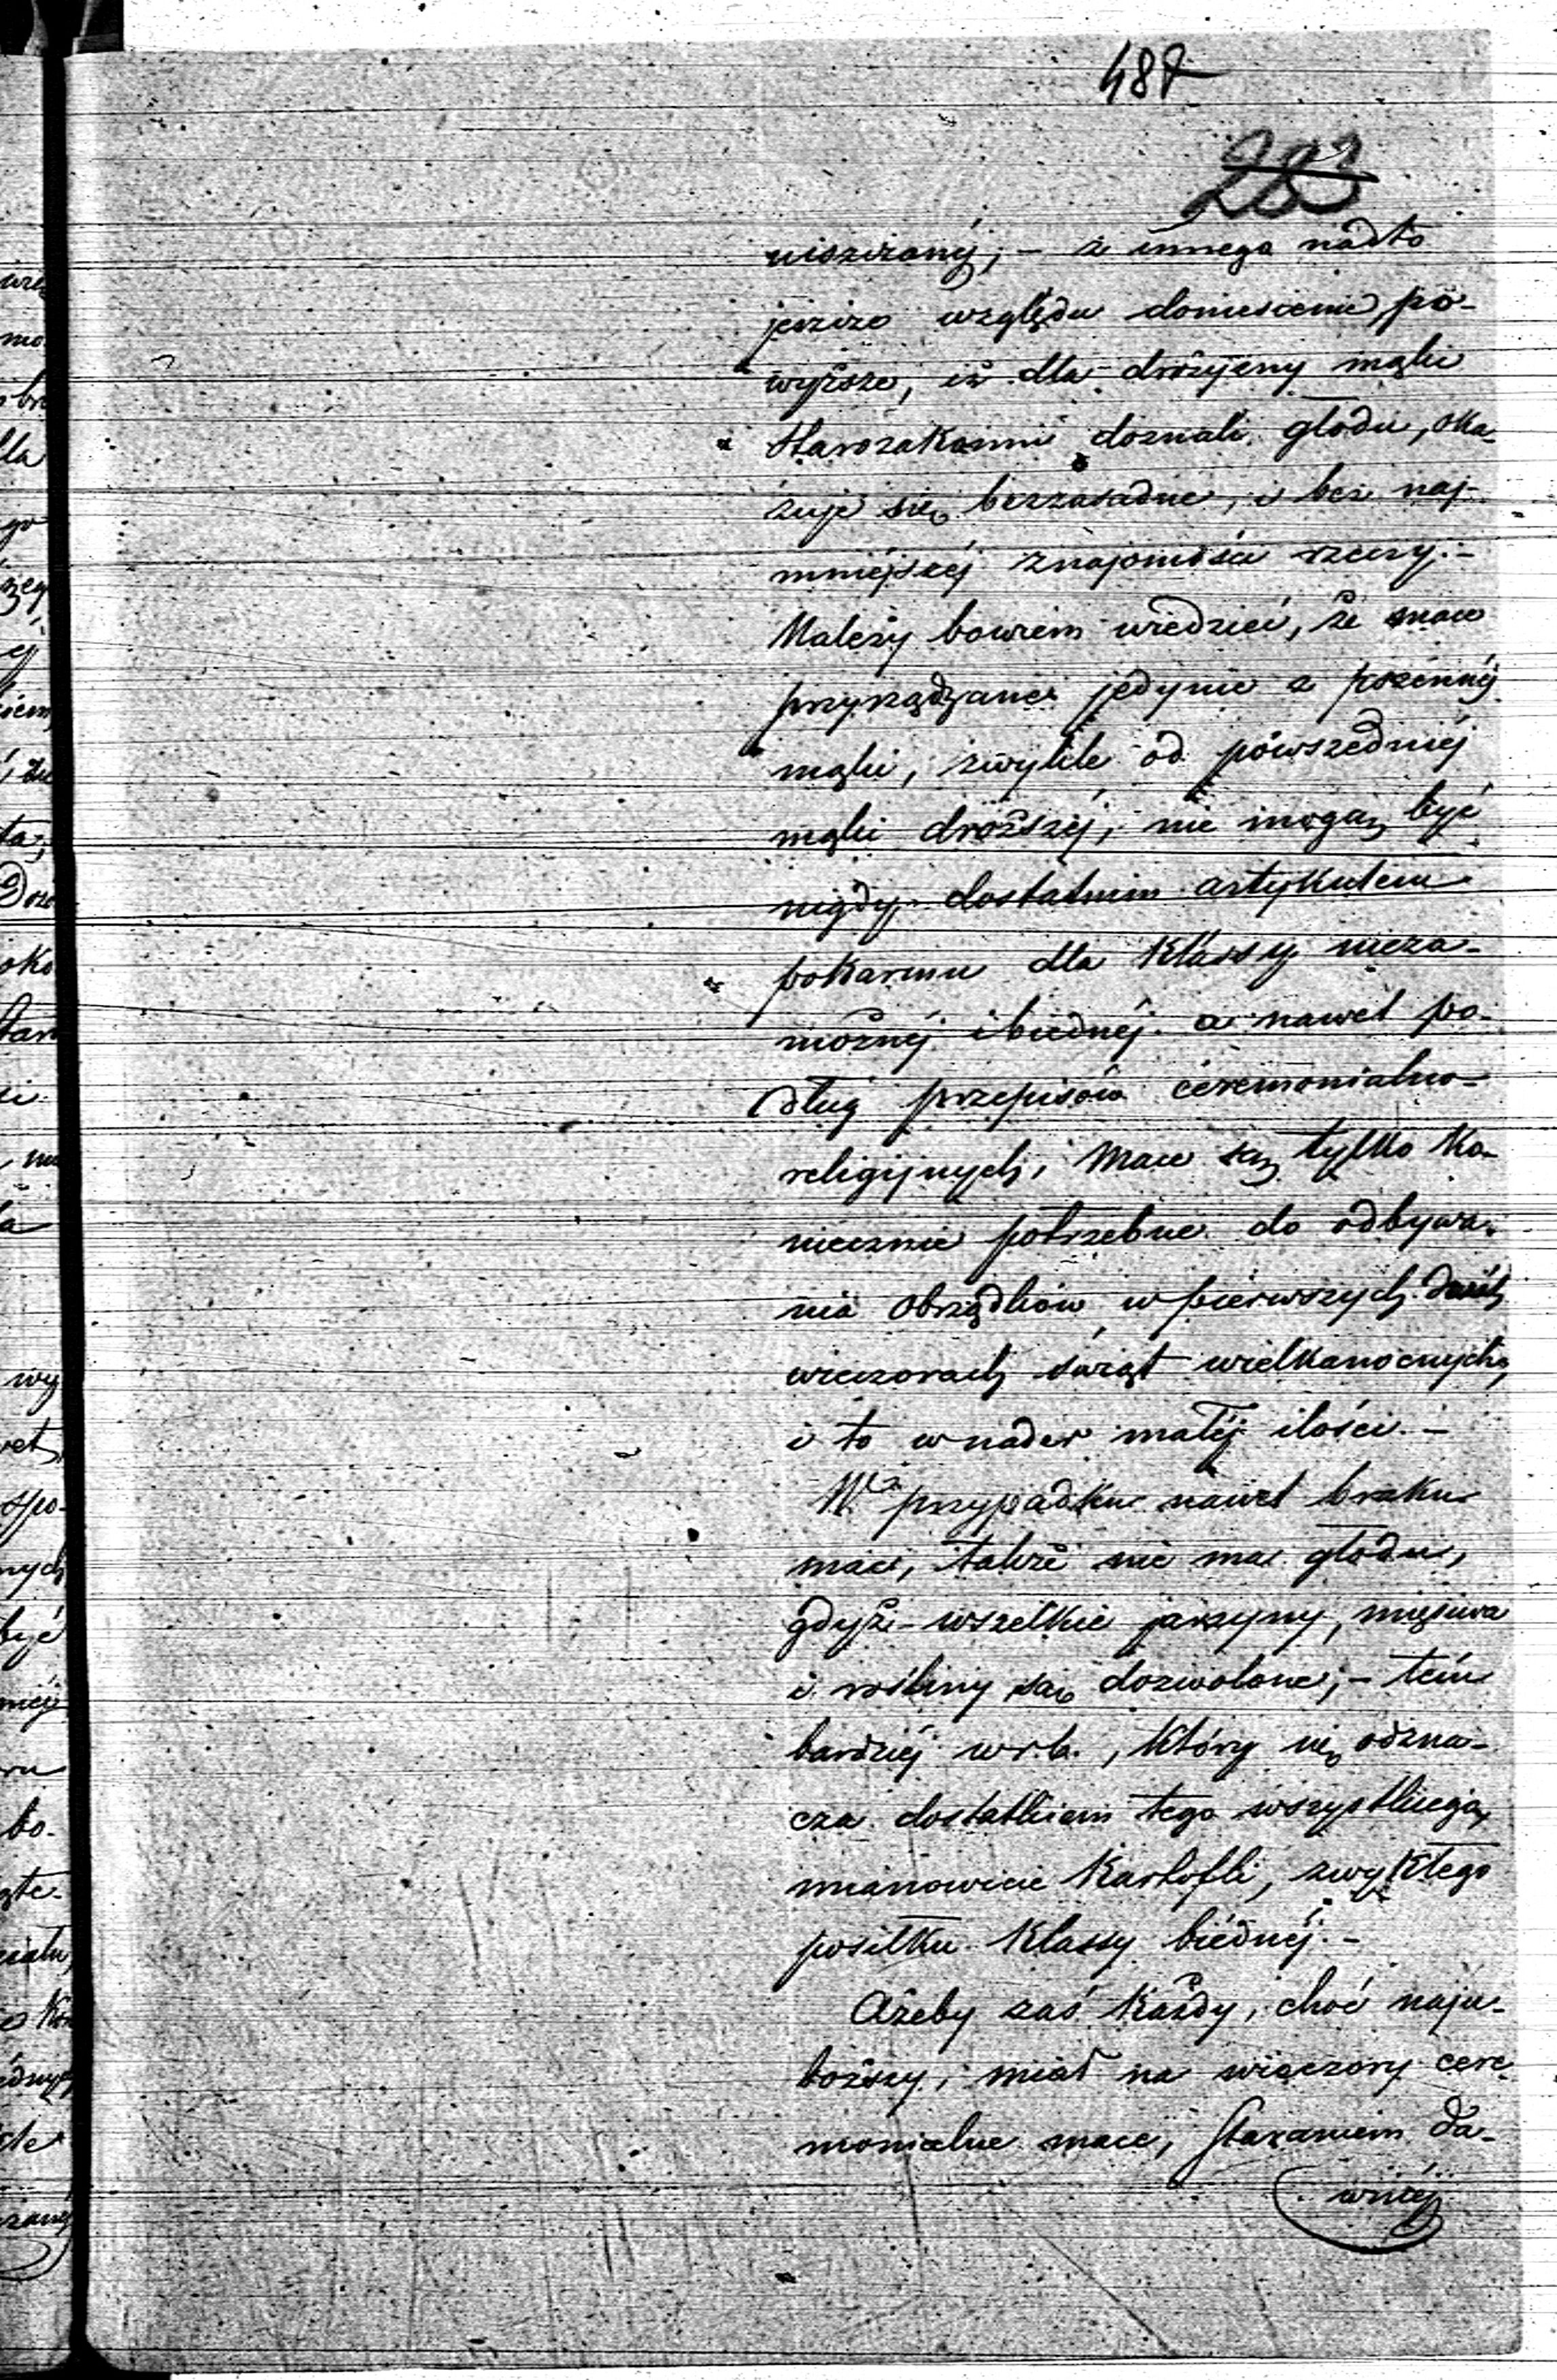 487
283
niszczonéj; – z innego nadto
jeszcze względu doniesienie po-
wyższe, iż dla drożyzny mąki
Starozakonni doznali głodu, oka-
zuje się bezzasadne, i bez naj-
mniéjszéj znajomości rzeczy. –
Należy bowiem wiedzieć, że mace
przyrządzane jedynie z pszennéj
mąki, zwykle od powszedniéj
mąki droższéj, nie mogą być
nigdy dostatnim artykułem
pokarmu dla klassy nieza-
możnéj i biednéj. a nawet po-
dług przepisów ceremonialno-
religijnych, mace są tylko ko-
niecznie potrzebne do odbywa-
nia obrządków w pierwszych dwóch
wieczorach świąt wielkanocnych,
i to w nader małéj ilości. –
W przypadku nawet braku
mac, także nie ma głodu,
gdyż wszelkie jarzyny, mięsiwa
i rośliny są dozwolone; – tém
bardziéj w r. b., który się odzna-
cza dostatkiem tego wszystkiego,
mianowicie kartofli, zwykłego
posiłku klassy biédnéj. –
Ażeby zaś każdy, choć naju-
boższy, miał na wieczory cere-
monialne mace, staraniem da-
wniéj
wy
być